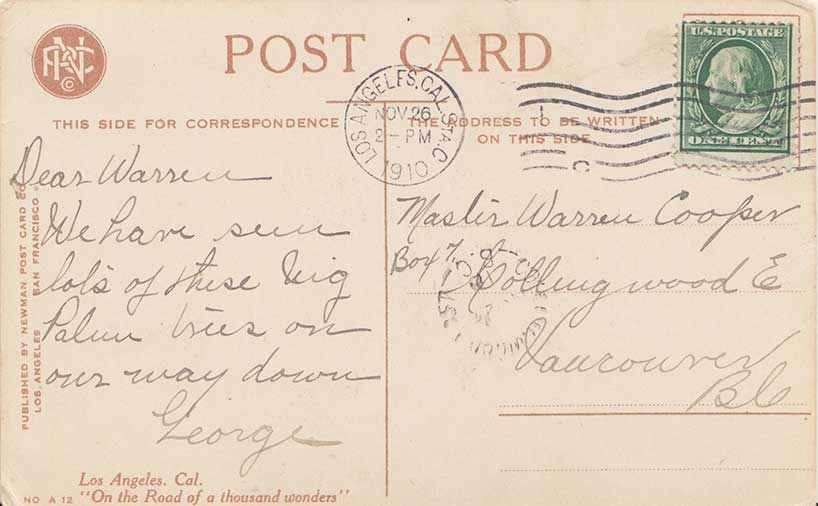 POST CARD
THIS SIDE FOR CORRESPONDENCE
THE ADDRESS TO BE WRITTEN
ON THIS SIDE
LOS ANGELES, CAL. STA. C
NOV 26
2 - PM
1910
U.S. POSTAGE
ONE CENT
C
Dear Warren
We have seen
lots of these big
Palm trees on
our way down
George
Master Warren Cooper
Box 7
Collingwood E
Vancouver
BC
PUBLISHED BY NEWMAN POST CARD CO.
LOS ANGELES SAN FRANCISCO
Los Angeles, Cal.
NO A 12 "On the Road of a thousand wonders"